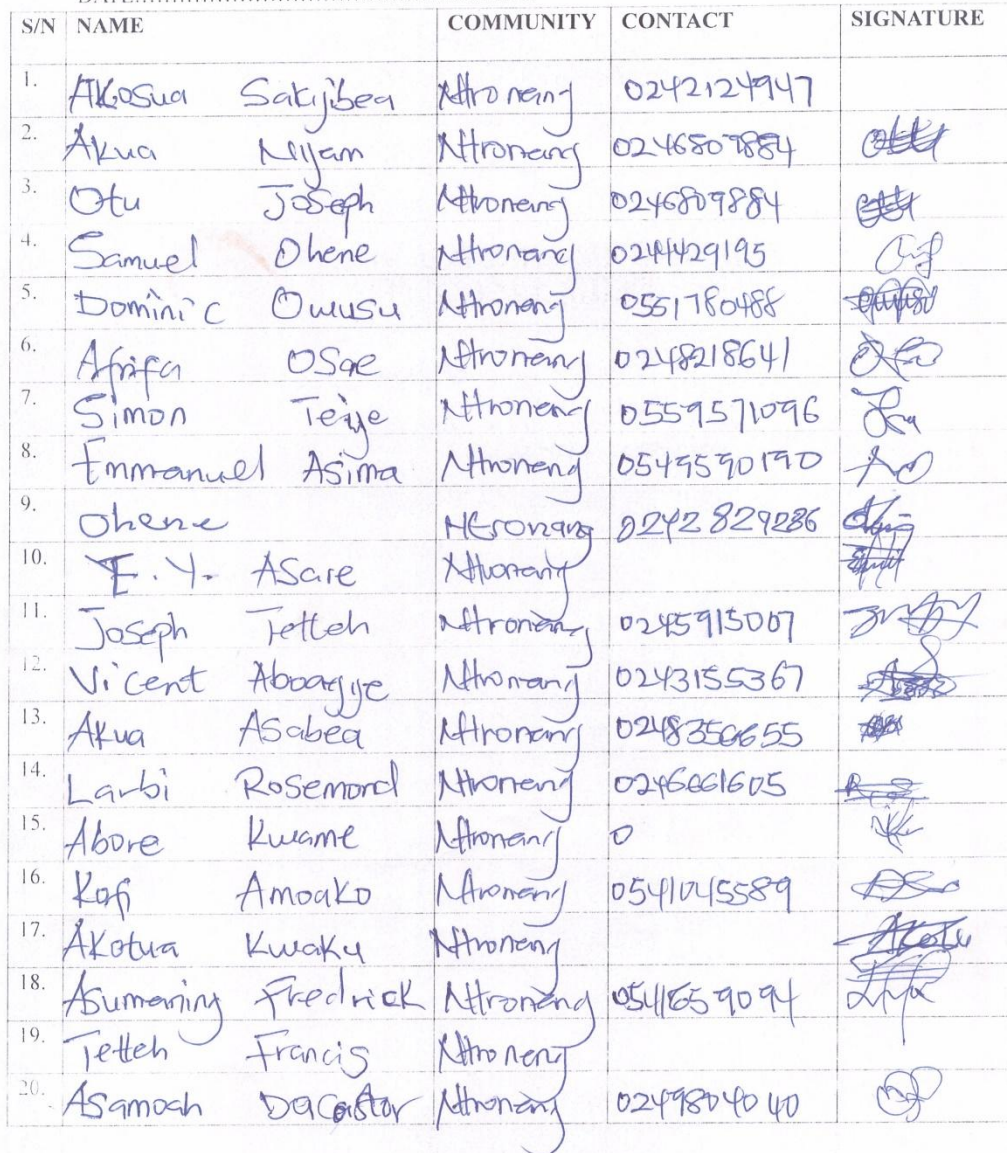 S/N NAME COMMUNITY CONTACT SIGNATURE
1. Akosua Sakyibea Ntronang 0242124947
2. Akua Nyam Ntronang 0246809884
3. Otu Joseph Ntronang 0246809884
4. Samuel Ohene Ntronang 0241429195
5. Dominic Owusu Ntronang 0551780488
6. Afrifa Osae Ntronang 0248218641
7. Simon Teiye Ntronang 0559571096
8. Emmanuel Asima Ntronang 0549590190
9. Ohene Ntronang 0242829286
10. E.Y. Asare Ntronang
11. Joseph Tetteh Ntronang 0245915007
12. Vicent Aboagye Ntronang 0243155367
13. Akua Asabea Ntronang 0248356655
14. Larbi Rosemond Ntronang 0246661605
15. Abore Kwame Ntronang 0
16. Kofi Amoako Ntronang 0541045589
17. Akotua Kwaku Ntronang
18. Asumaning Fredrick Ntronang 0541659094
19. Tetteh Francis Ntronang
20. Asamoah Dacastor Ntronang 0249804040